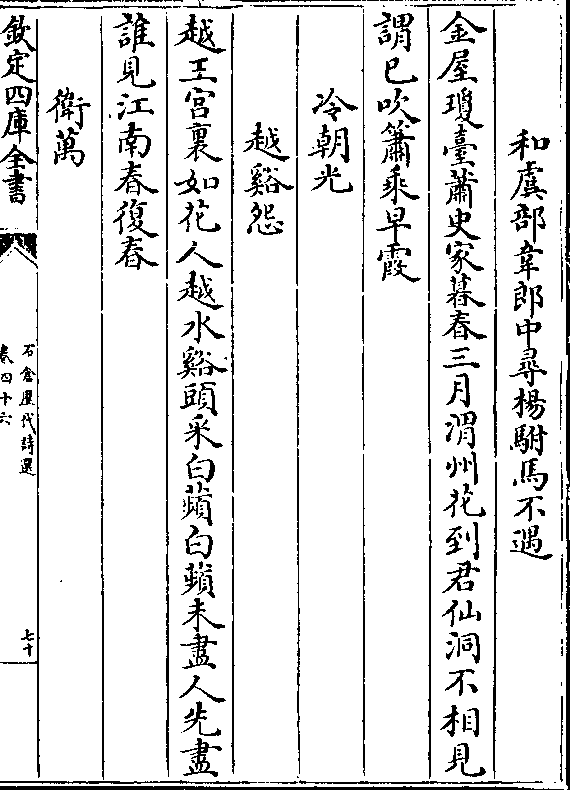 和虞部韋郎中尋楊駙馬不遇
金屋瓊臺蕭史家暮春三月渭州花到君仙洞不相見
謂已吹簫乘早霞
冷朝光
越谿怨
越王宮裏如花人越水谿頭采白蘋白蘋未盡人先盡
誰見江南春復春
衛萬
欽定四庫全書
石倉歷代詩選
卷四十六
七十